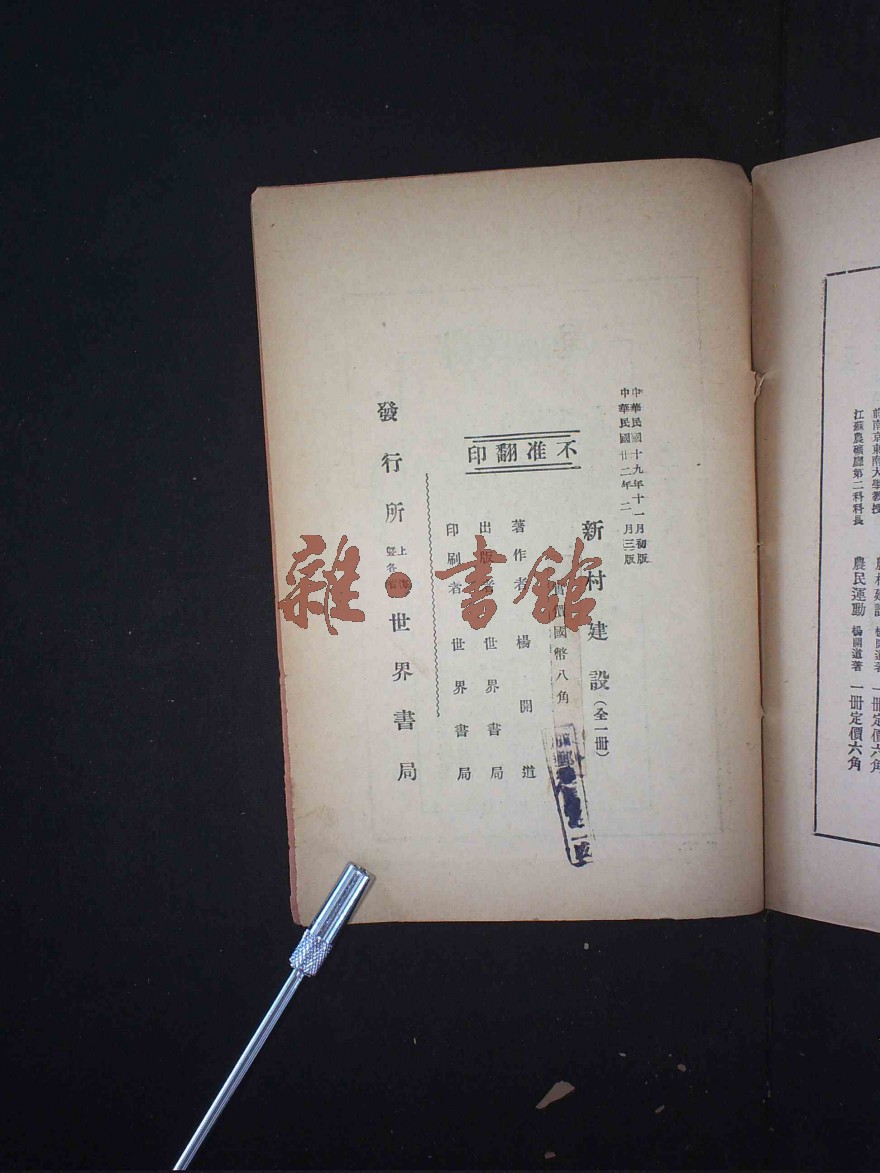 前南京東南大學教授
江蘇農礦廳第二科科長
楊開道著 一冊定價六角
農民運動 楊開道著 一冊定價六角
中華民國十九年十一月初版
中華民國廿二年二月三版
新村建設(全一冊)
價國幣八角
不准翻印
著作者 楊開道
出版者 世界書局
印刷者 世界書局
發行所 上 暨各 世界書局
雜·書館